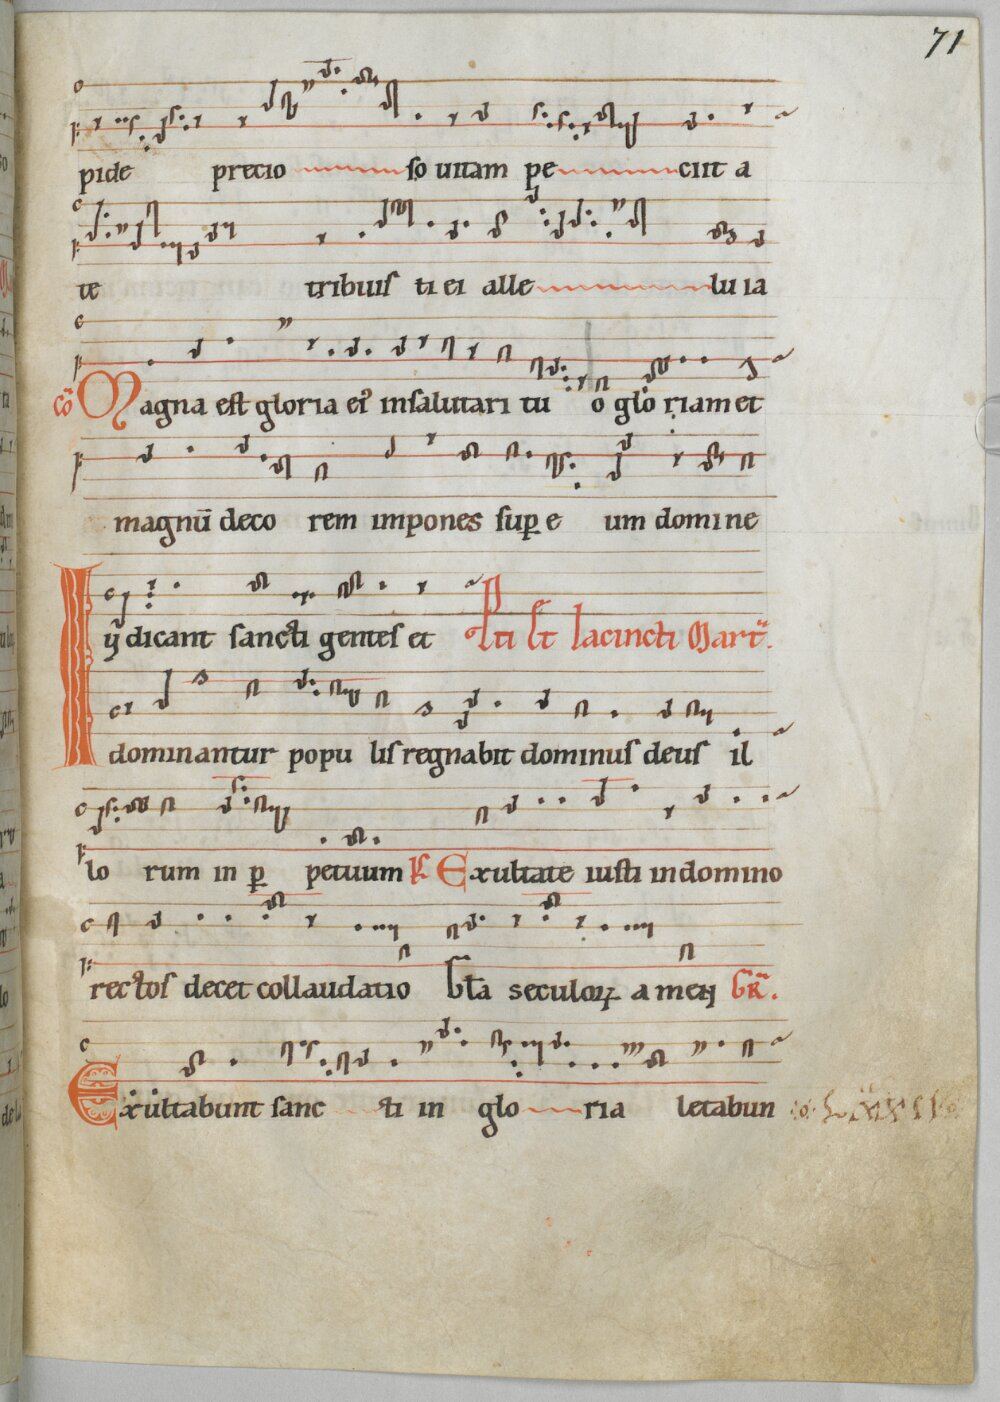 71
pide precio so uitam pe ciit a
te tribuis ti ei alle lu ia
Cõ Magna est gloria ei' in salutari tu o glo riam et
magnū deco rem impones sup e um domine
Iudicant sancti gentes et Pti et Iacincti Mart.
dominantur popu lis regnabit dominus deus il
lo rum in p petuum Ps Exultate iusti in domino
rectos decet collaudatio Glia seculoꝝ amen GR.
Exultabunt sanc ti in glo ria letabun